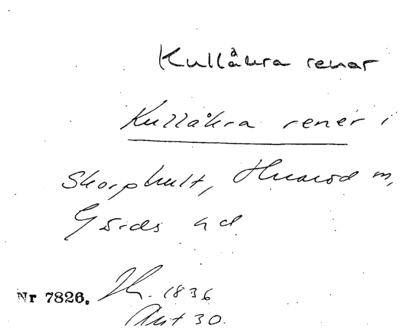 Kullåkra renar
Kullåkra rener i
Skorphult, Huaröd m,
Gärds hd
Nr 7826. Sk. 1836
Akt 30.